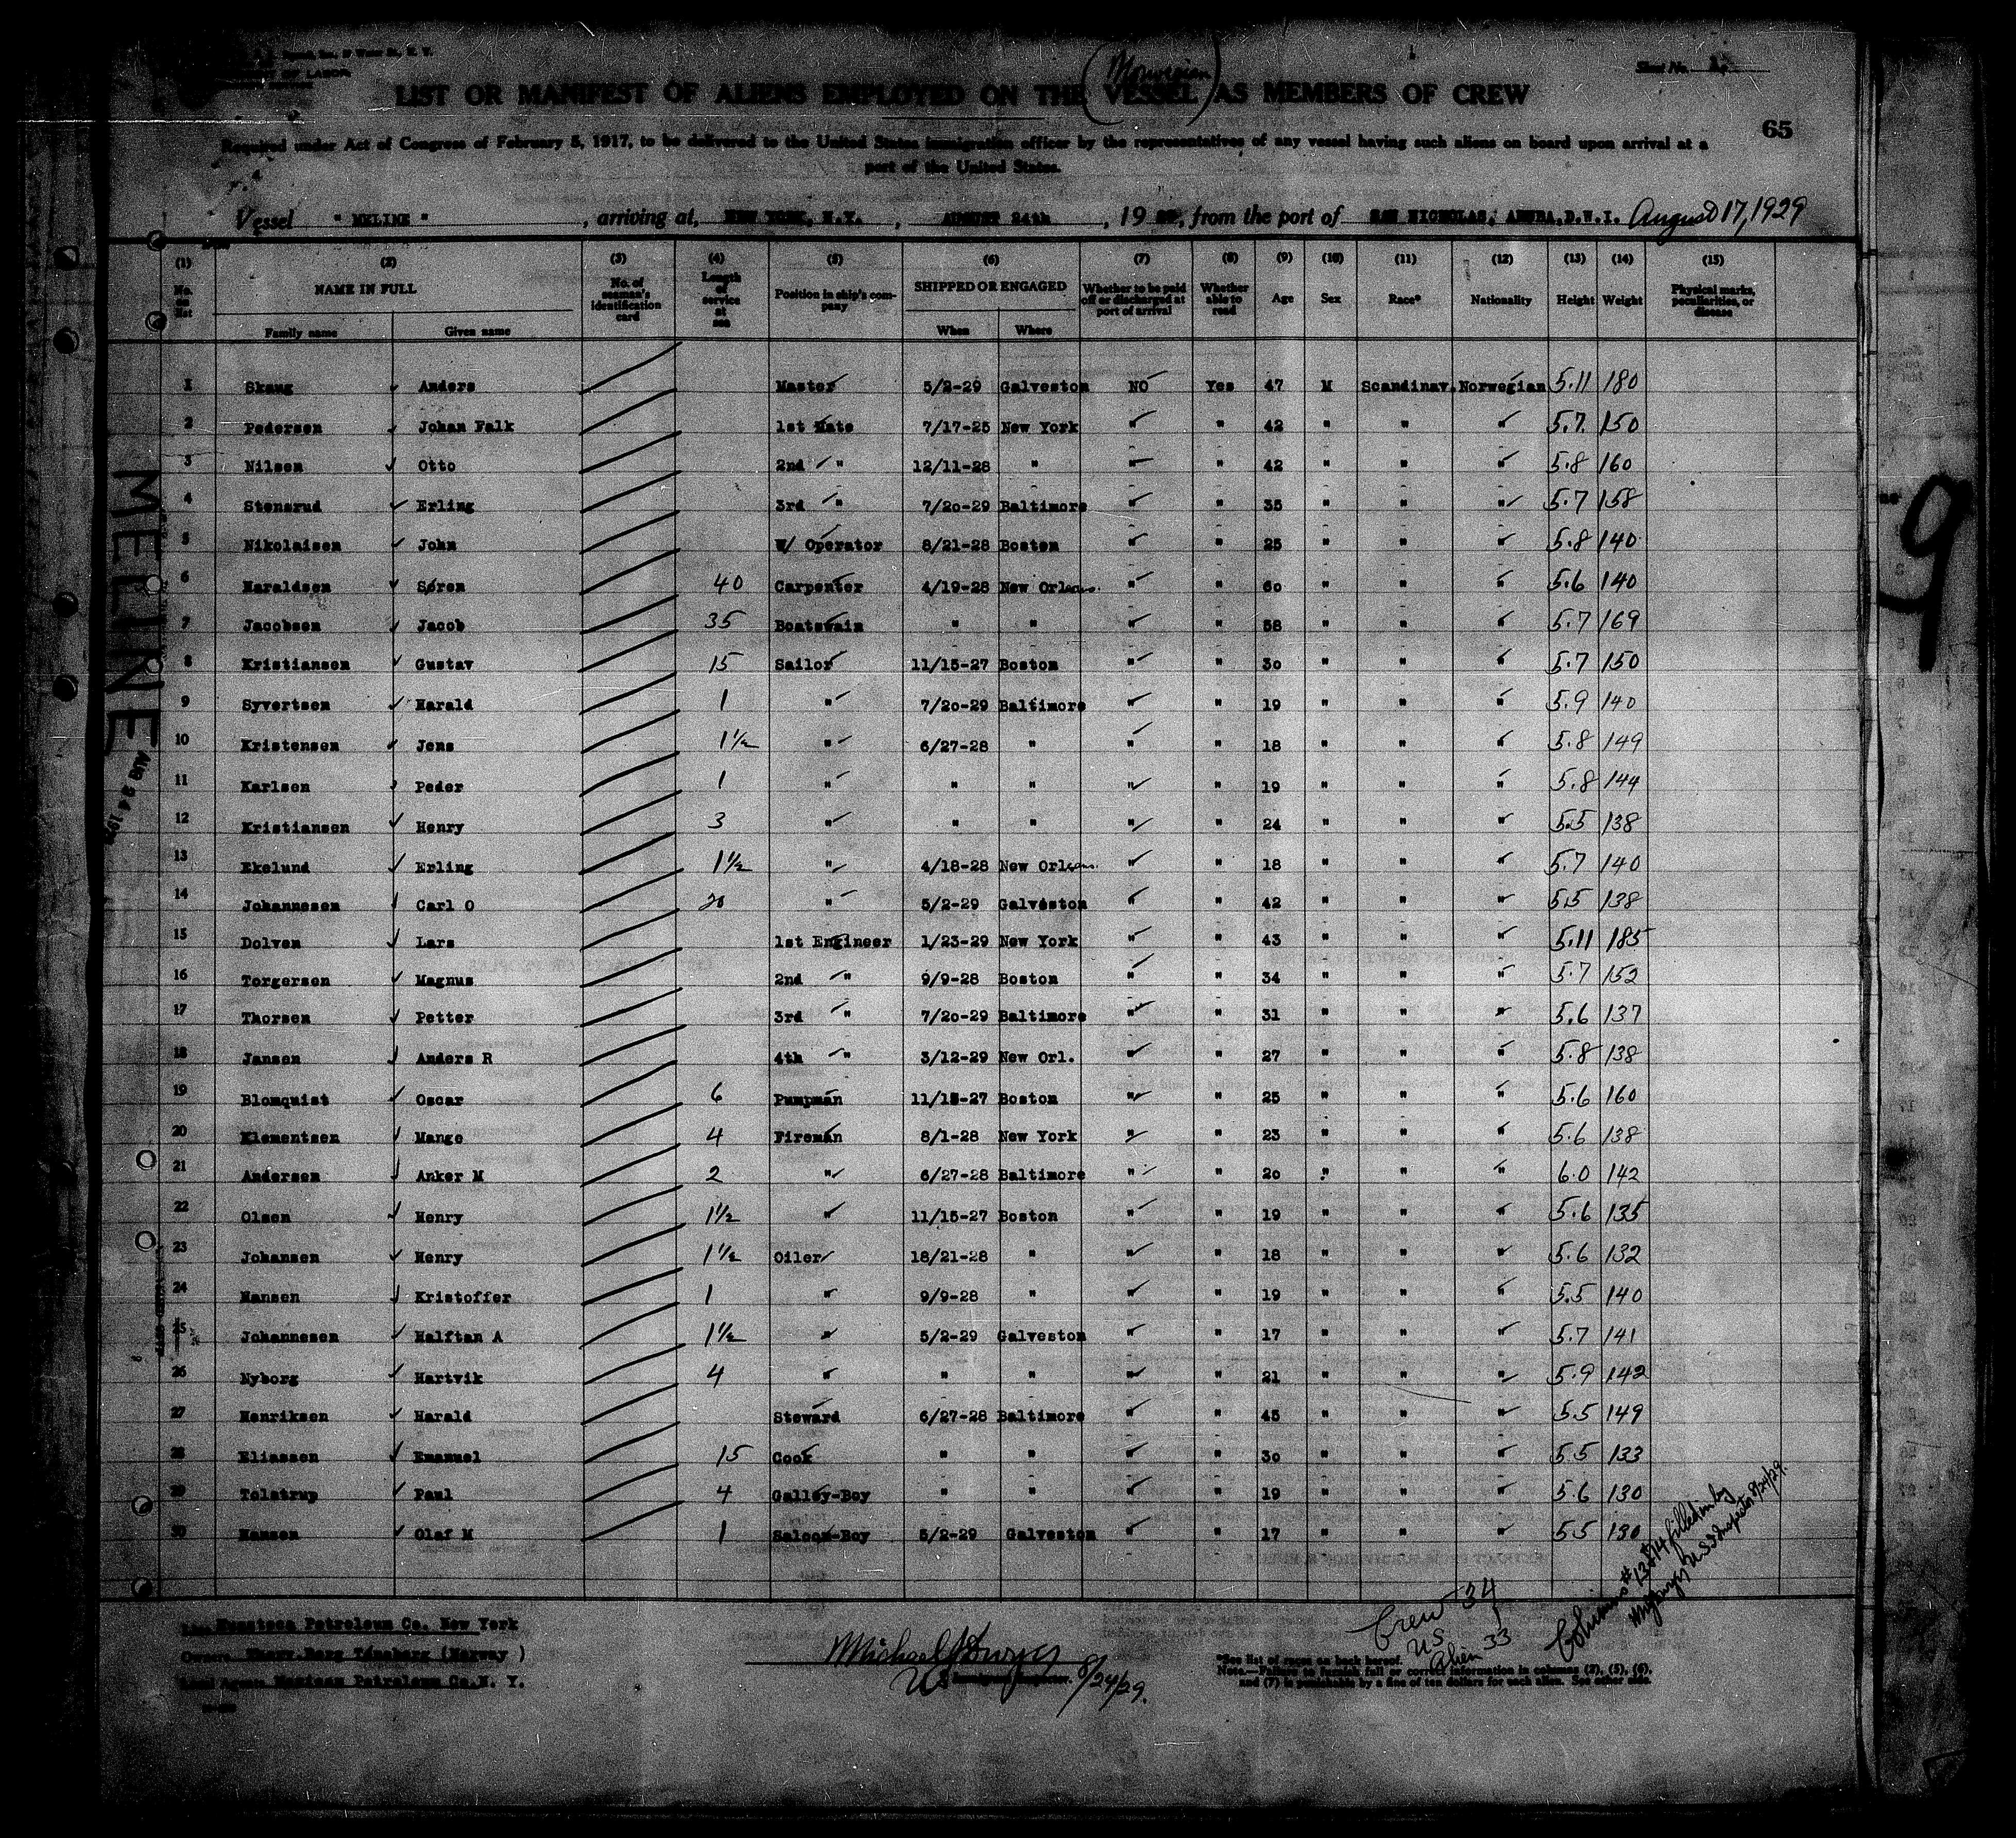 Sheet No. 1
OF LABOR
(Norwegian)
LIST OR MANIFEST OF ALIENS EMPLOYED ON THE VESSEL AS MEMBERS OF CREW
65
Required under Act of Congress of February 5, 1917, to be delivered to the United States immigration officer by the representatives of any vessel having such aliens on board upon arrival at a
port of the United States.
Vessel " MELINE " , arriving at, NEW YORK, N.Y. , AUGUST 24th , 19 29, from the port of SAN NICHOLAS, ARUBA,D.W.I. August 17, 1929
(1) (2) (3) (4) (5) (6) (7) (8) (9) (10) (11) (12) (13) (14) (15)
No. on list NAME IN FULL No. of seaman's identification card Length of service at sea Position in ship's company SHIPPED OR ENGAGED Whether to be paid off or discharged at port of arrival Whether able to read Age Sex Race* Nationality Height Weight Physical marks, peculiarities, or disease
Family name Given name When Where
1 Skaug Anders Master 5/2-29 Galveston NO Yes 47 M Scandinav. Norwegian 5.11 180
2 Pedersen Johan Falk 1st Mate 7/17-25 New York " " 42 " " " 5.7 150
3 Nilsen Otto 2nd " 12/11-28 " " " 42 " " " 5.8 160
4 Stensrud Erling 3rd " 7/20-29 Baltimore " " 35 " " " 5.7 158
5 Nikolaisen John W/ Operator 8/21-28 Boston " " 25 " " " 5.8 140
6 Haraldsen Søren 40 Carpenter 4/19-28 New Orleans " " 60 " " " 5.6 140
7 Jacobsen Jacob 35 Boatswain " " " " 58 " " " 5.7 169
8 Kristiansen Gustav 15 Sailor 11/15-27 Boston " " 30 " " " 5.7 150
9 Syvertsen Harald 1 " 7/20-29 Baltimore " " 19 " " " 5.9 140
10 Kristensen Jens 1½ " 6/27-28 " " " 18 " " " 5.8 149
11 Karlsen Peder 1 " " " " " 19 " " " 5.8 144
12 Kristiansen Henry 3 " " " " " 24 " " " 5.5 138
13 Ekelund Erling 1½ " 4/18-28 New Orleans " " 18 " " " 5.7 140
14 Johannesen Carl O 20 " 5/2-29 Galveston " " 42 " " " 5.5 138
15 Dolven Lars 1st Engineer 1/23-29 New York " " 43 " " " 5.11 185
16 Torgersen Magnus 2nd " 9/9-28 Boston " " 34 " " " 5.7 152
17 Thorsen Petter 3rd " 7/20-29 Baltimore " " 31 " " " 5.6 137
18 Jansen Anders R 4th " 3/12-29 New Orl. " " 27 " " " 5.8 138
19 Blomquist Oscar 6 Pumpman 11/15-27 Boston " " 25 " " " 5.6 160
20 Klementsen Mange 4 Fireman 8/1-28 New York " " 23 " " " 5.6 138
21 Andersen Anker M 2 " 6/27-28 Baltimore " " 20 " " " 6.0 142
22 Olsen Henry 1½ " 11/15-27 Boston " " 19 " " " 5.6 135
23 Johansen Henry 1½ Oiler 18/21-28 " " " 18 " " " 5.6 132
24 Hansen Kristoffer 1 " 9/9-28 " " " 19 " " " 5.5 140
25 Johannesen Halftan A 1½ " 5/2-29 Galveston " " 17 " " " 5.7 141
26 Nyborg Hartvik 4 " " " " " 21 " " " 5.9 142
27 Henriksen Harald Steward 6/27-28 Baltimore " " 45 " " " 5.5 149
28 Eliassen Emanuel 15 Cook " " " " 30 " " " 5.5 133
29 Tolstrup Paul 4 Galley-Boy " " " " 19 " " " 5.6 130
30 Hansen Olaf M 1 Saloon-Boy 5/2-29 Galveston " " 17 " " " 5.5 130
MELINE
AUG 24 19
9
Columns # 13 & 14 filled in by
US I Inspector 8/24/29.
Crew 34
US 1
Alien 33
Petroleum Co. New York
Owners Thorv. Berg Tönsberg (Norway )
Local Agents Petroleum Co. N. Y.
Michael
US 8/24/29.
*See list of races on back hereof.
Note.—Failure to furnish full or correct information in columns (2), (5), (6),
and (7) is punishable by a fine of ten dollars for each alien. See other side.